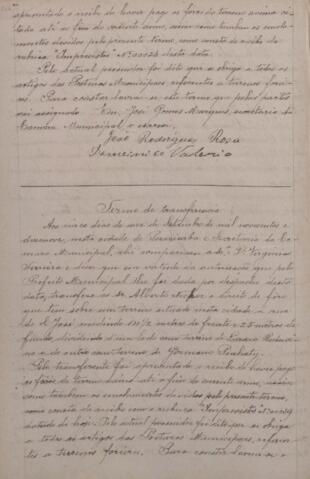 apresentado o recibo de haver pago os fóros do terreno acima ci-
tado até o fim do corrente anno, assim como tambem os emolu-
mentos devidos pelo presente termo, como consta do recibo da
rubrica "Imprevistos" Nº desta data.
Pelo actual possuidor foi dito que se obriga a todos os
artigos das Posturas Municipaes, referentes a terrenos forei-
ros. Para constar lavrou-se este termo que pelas partes
vai assignado. Eu, José Gomes Marques, secretario da
Camara Municipal o escrevi.
José Rodrigues Rosa
Valerio
Termo de transferencia
Aos cinco dias do mez de Setembro de mil novecentos e
dezenove, nesta cidade de e Secretaria da Ca-
mara Municipal, ahi compareceu a dª Virginia
Ferreira e disse que em virtude da autorisação que pelo
Prefeito Municipal lhe foi dada por despacho desta
data, transfere ao sr. Alberto o direito de fôro
que tem sobre um terreno situado nesta cidade à rua
de S. José medindo 11 1/2 metros de frente e 25 metros de
fundo, dividindo d'um lado com terreno de
e de outro com terreno de Germano
Pela transferente foi apresentado o recibo de haver pago
os fóros do terreno acima até o fim do corrente anno, assim
como tambem os emolumentos devidos pelo presente termo,
como consta do recibo com a rubrica "Imprevistos" Nº
datado de hoje. Pelo actual possuidor foi dito que se obriga
a todos os artigos das Posturas Municipaes, referen-
tes a terrenos foreiros. Para constar lavrou-se o